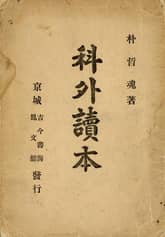 朴哲魂著
科外讀本
京城 古今書海 發行